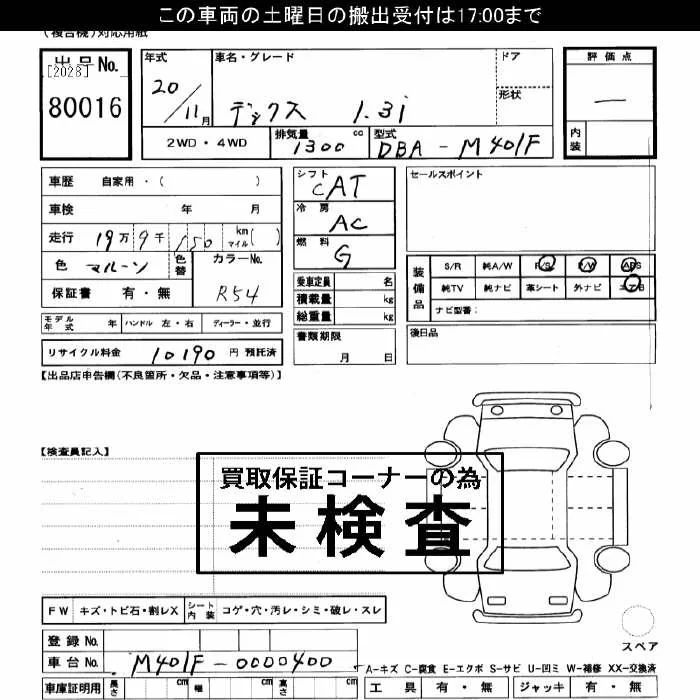 この車両の土曜日の搬出受付は17:00まで
(複合機)対応用紙
出品No. [2028] 80016
年式 20/11月
車名・グレード デックス 1.3i
ドア
形状
2WD・4WD
排気量 1300 cc
型式 DBA-M401F
評価点 —
内装
車歴 自家用・( )
車検 年 月
走行 19万9千150 km マイル( )
色 マルーン 色替 カラーNo. R54
保証書 有・無
シフト CAT
冷房 AC
燃料 G
乗車定員 名
積載量 kg
総重量 kg
セールスポイント
装備品 S/R 純A/W P/S P/W ABS
純TV 純ナビ 革シート 外ナビ エアB
ナビ型番:
モデル年式 年 ハンドル 左・右 ディーラー・並行
書類期限 月 日
後日品
リサイクル料金 10190 円 預託済
【出品店申告欄(不良箇所・欠品・注意事項等)】
【検査員記入】
買取保証コーナーの為
未検査
FW キズ・トビ石・割レX シート内装 コゲ・穴・汚レ・シミ・破レ・スレ
スペア
登録No.
車台No. M401F-0000400
A-キズ C-腐食 E-エクボ S-サビ U-凹ミ W-補修 XX-交換済
車庫証明用 長さ cm 幅 cm 高さ cm
工具 有・無 ジャッキ 有・無